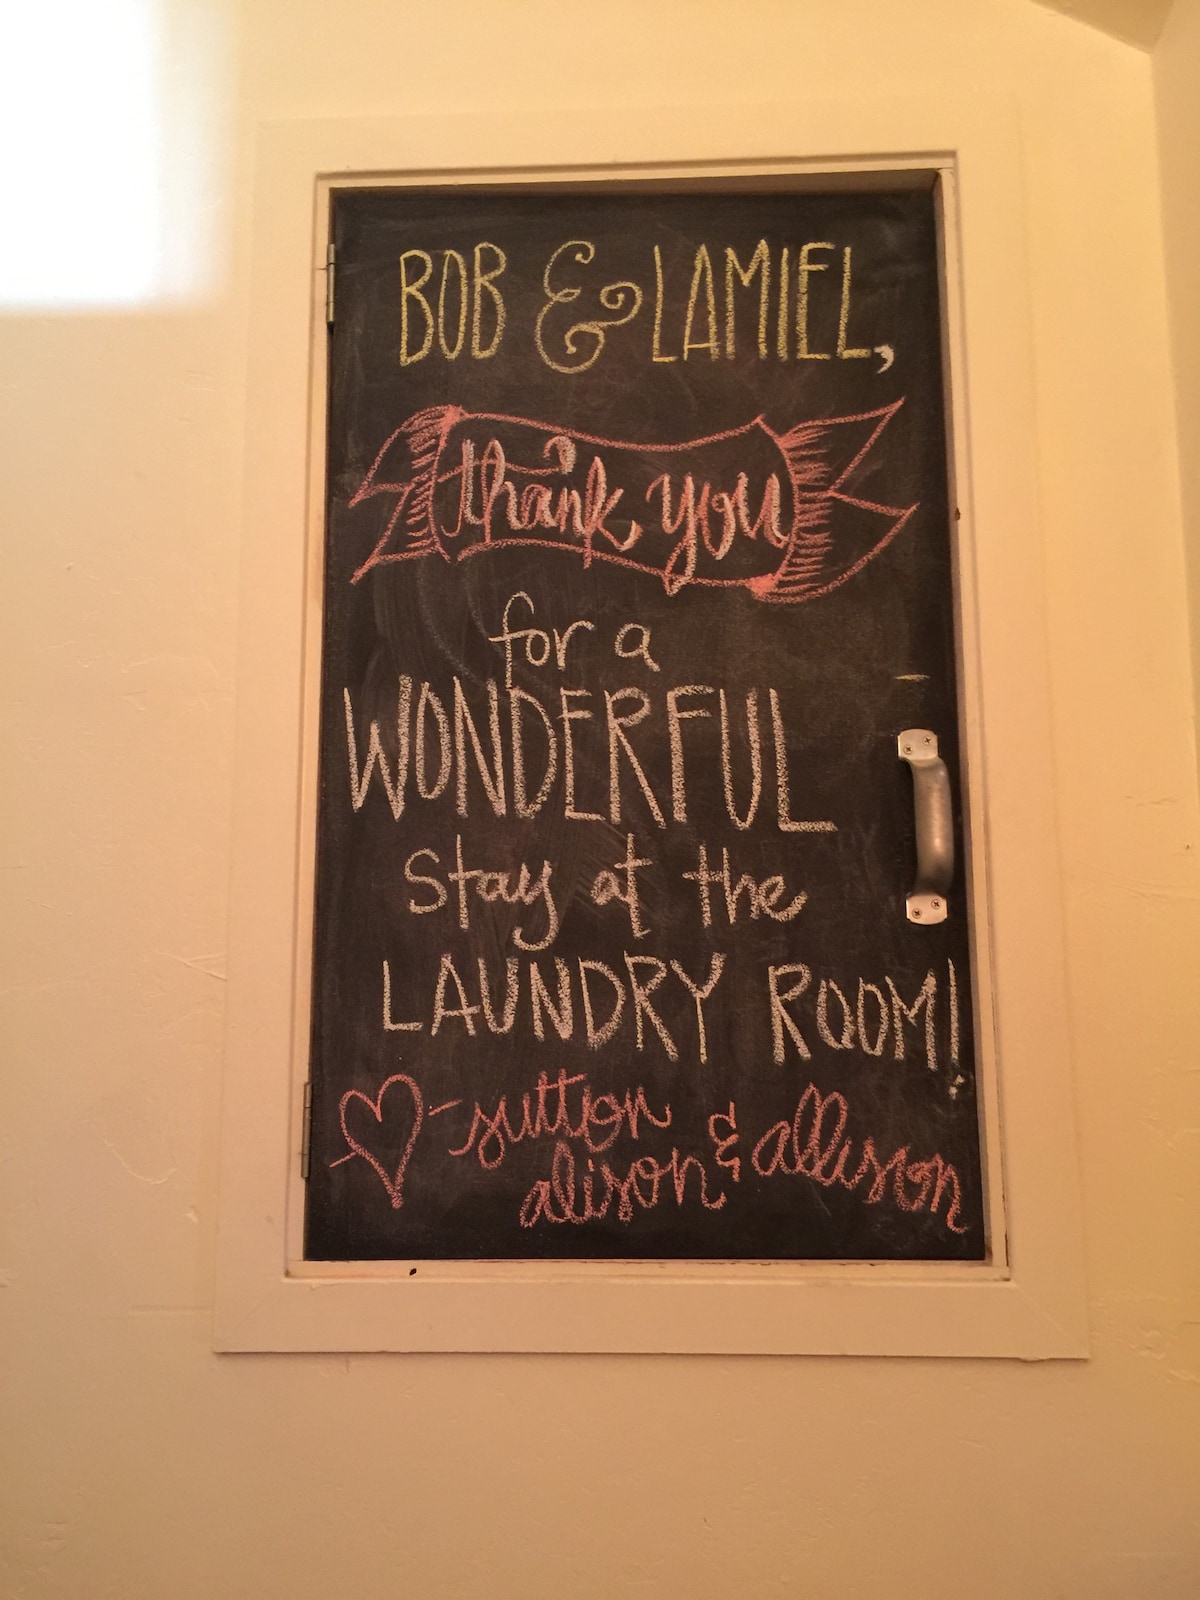 BOB & LAMIEL,
thank you
for a
WONDERFUL
stay at the
LAUNDRY ROOM!
-sutton
alison & allison